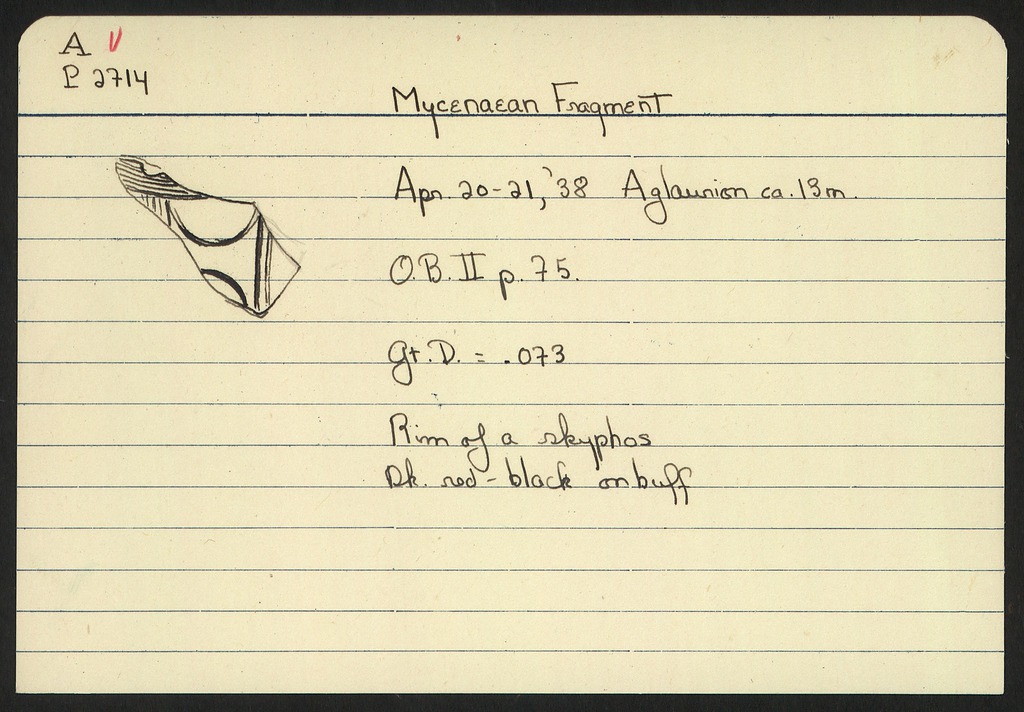 A V
P 2714
Mycenaean Fragment
Apr. 20-21, '38 Aglaurion ca. 13m.
O.B. II p. 75.
Gt. D. = .073
Rim of a skyphos
Dk. red-black on buff